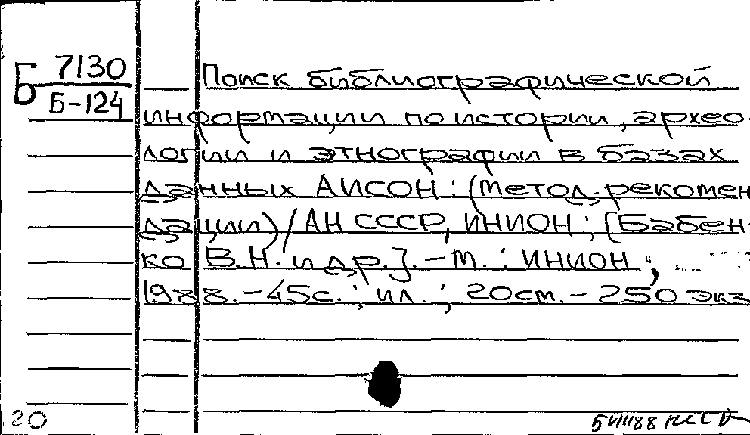 Б 7130
Б-124
Поиск библиографической
информации по истории, архео-
логии и этнографии в базах
данных АИСОН: (метод. рекомен
дации)/АН СССР, ИНИОН; [Бабен-
ко В.Н. и др.].-М.: ИНИОН,
1988.-45с.; ил.; 20см.-250 экз
20